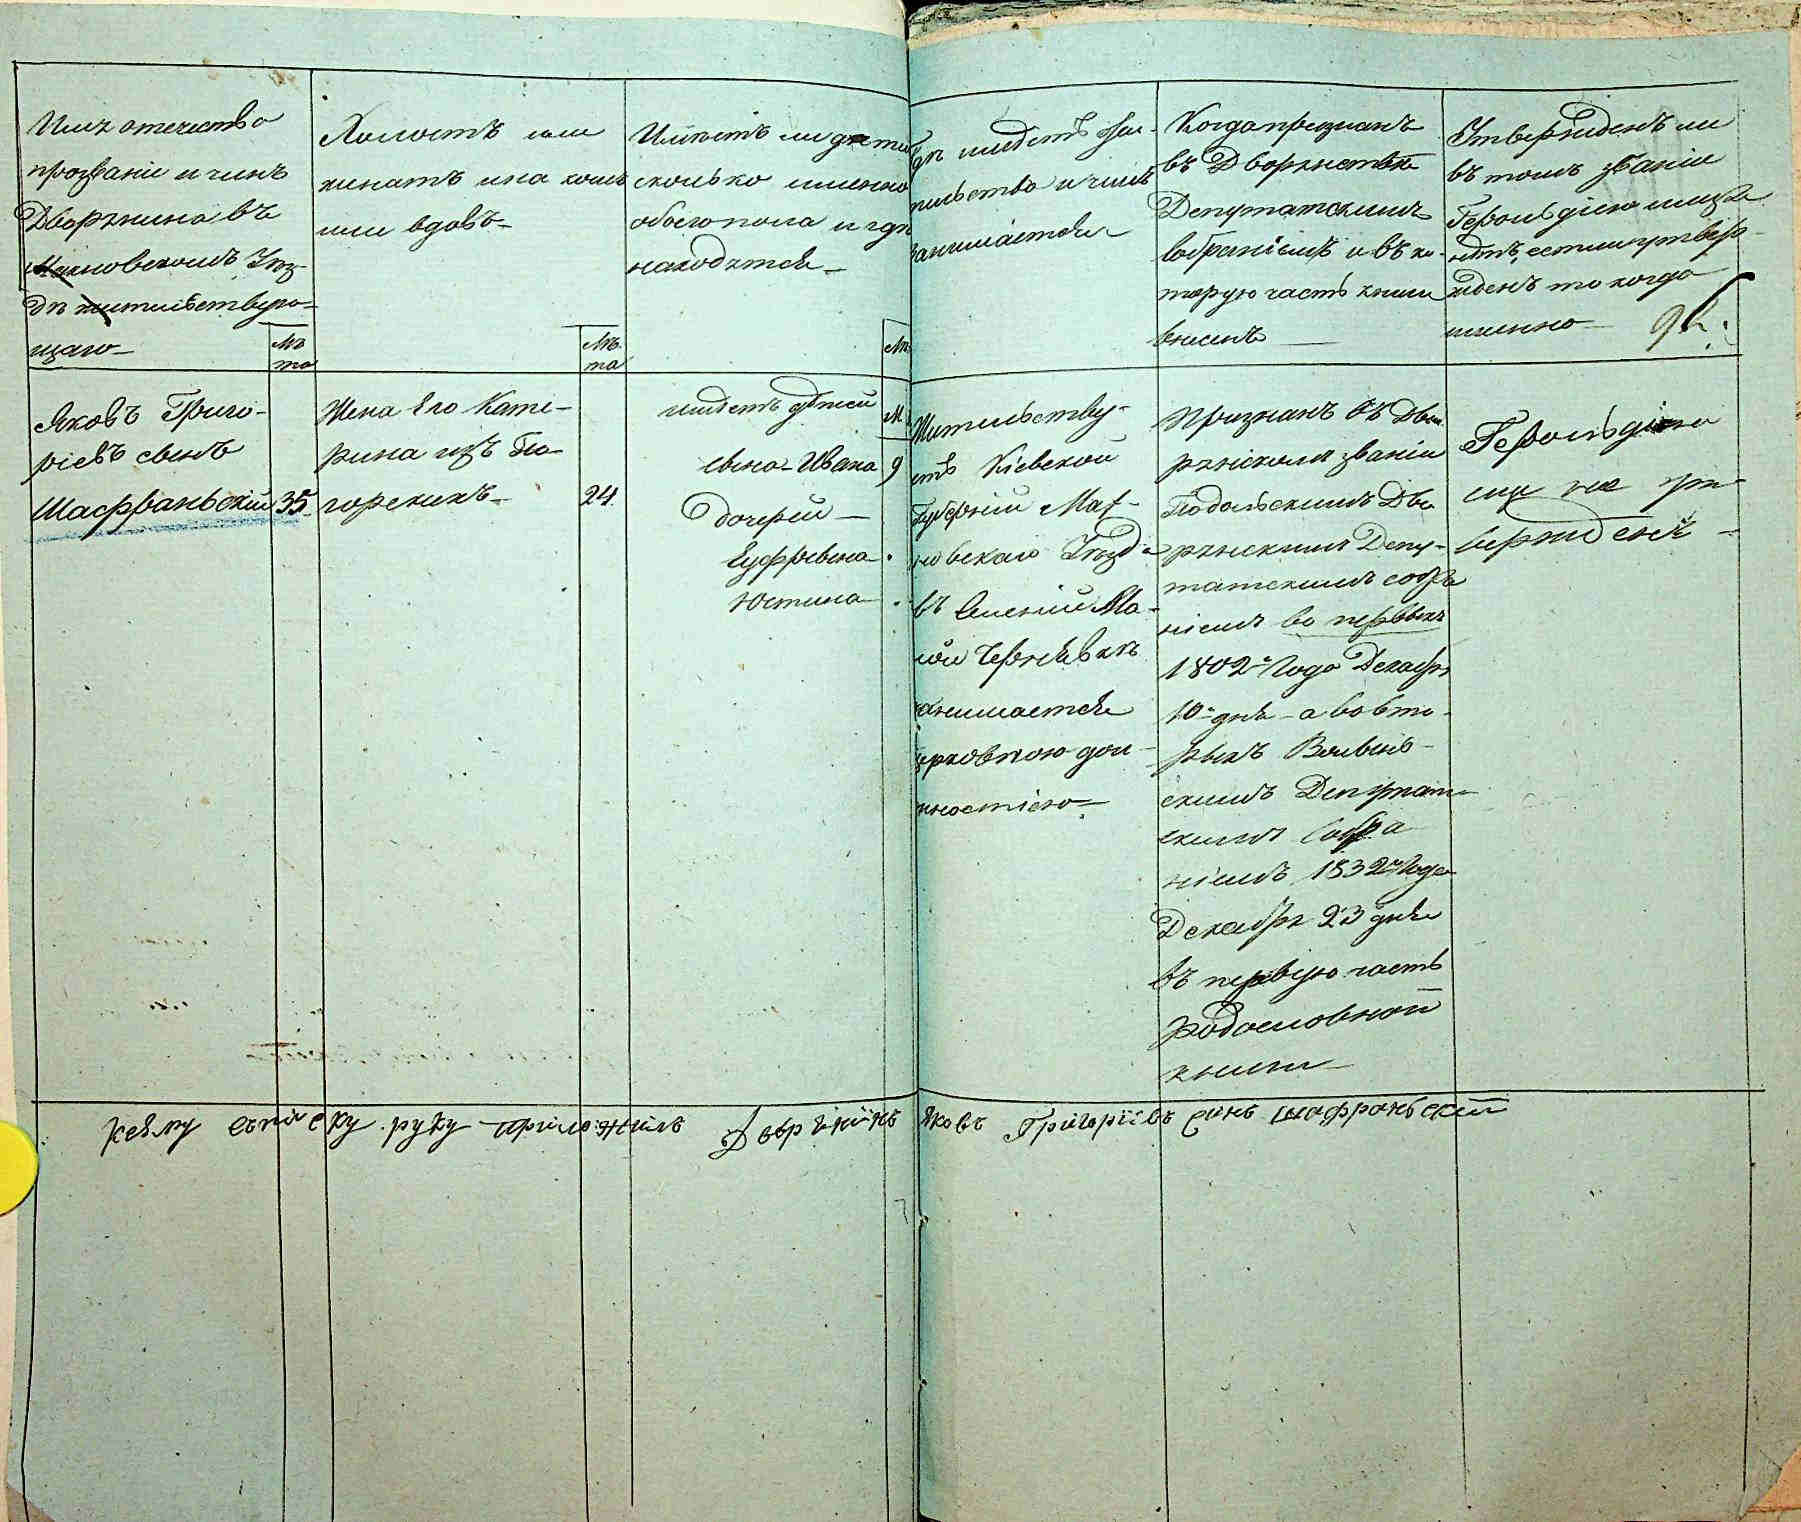 Имя отечество
прозваніе и чинъ
Дворянина въ
Махновскомъ Уѣз-
дѣ жительствую-
щаго
Лѣ
та
Холостъ или
женатъ и на комъ
или вдовъ
Лѣ
та
Имѣетъ ли дѣти
сколько именно
обоего пола и гдѣ
находятся
Лѣ
Гдѣ имѣетъ жи-
тельство и чимъ
занимается
Когда признанъ
въ Дворянствѣ
Депутатскимъ
собраніемъ и въ ко-
торую часть книги
внесенъ
Утвержденъ ли
въ томъ званіи
Герольдіею или
нѣтъ, естли утвер-
жденъ то когда
именно
Яковъ Григо-
ріевъ сынъ
Шафраньскій 35
Жена Его Кате-
рина изъ По-
горскихъ 24
имѣетъ дѣтей М.
сына Ивана 9
дочерей
Еуфросина
Юстина
Жительству-
етъ Кіевской
Губерніи Мах-
новскаго Уѣзда
въ Селеніи Ма-
лой Чернявкѣ
занимается
церковною дол-
жностію
Признанъ въ Дво-
рянскомъ званіи
Подольскимъ Дво-
рянскимъ Депу-
татскимъ собра
ніемъ во первыхъ
1802 Года Декабря
10 дня а во вто-
рыхъ Волынь-
скимъ Депутат
скимъ Собра
ніемъ 1832 Года
Декабря 23 дня
въ первую часть
родословной
книги
Герольдіею
еще не ут-
вержденъ
Ксему списку руку приложилъ Дворянинъ Яковъ Григоріевъ Синъ Шафранъскій